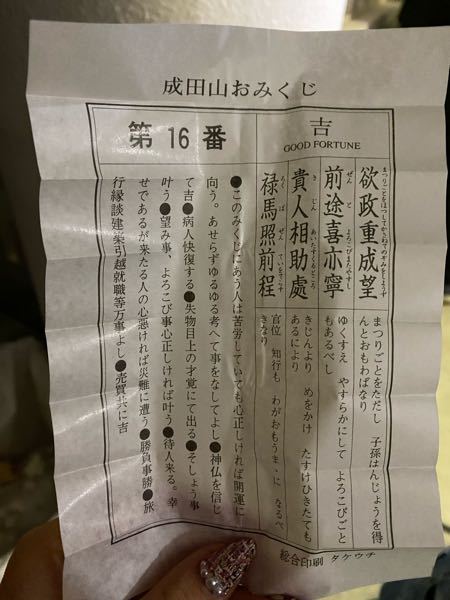 成田山おみくじ
第16番
吉
GOOD FORTUNE
欲政重成望
まつりごとをただし 子孫はんじょうを得
んとおもわばなり
前途喜亦寧
ぜんと よろこびまたやすし
ゆくすえ やすらかにして よろこびごと
もあるべし
貴人相助處
きじん あいたすくるところ
きじんより めをかけ たすけひきたても
あるにより
禄馬照前程
ろくば ぜんていをてらす
官位 知行も わがおもうまゝに なるべ
きなり
●このみくじにあう人は苦労していても心正しければ開運に
向う。あせらずゆるゆる考へて事をなしてよし●神仏を信じ
て吉●病人快復する●失物目上の才覚にて出る●そしょう事
叶う●望み事、よろこび事心正しければ叶う●待人来る。幸
せであるが来たる人の心悪ければ災難に遭う●勝負事勝●旅
行縁談建築引越就職等万事よし●売買共に吉
総合印刷 タケウチ